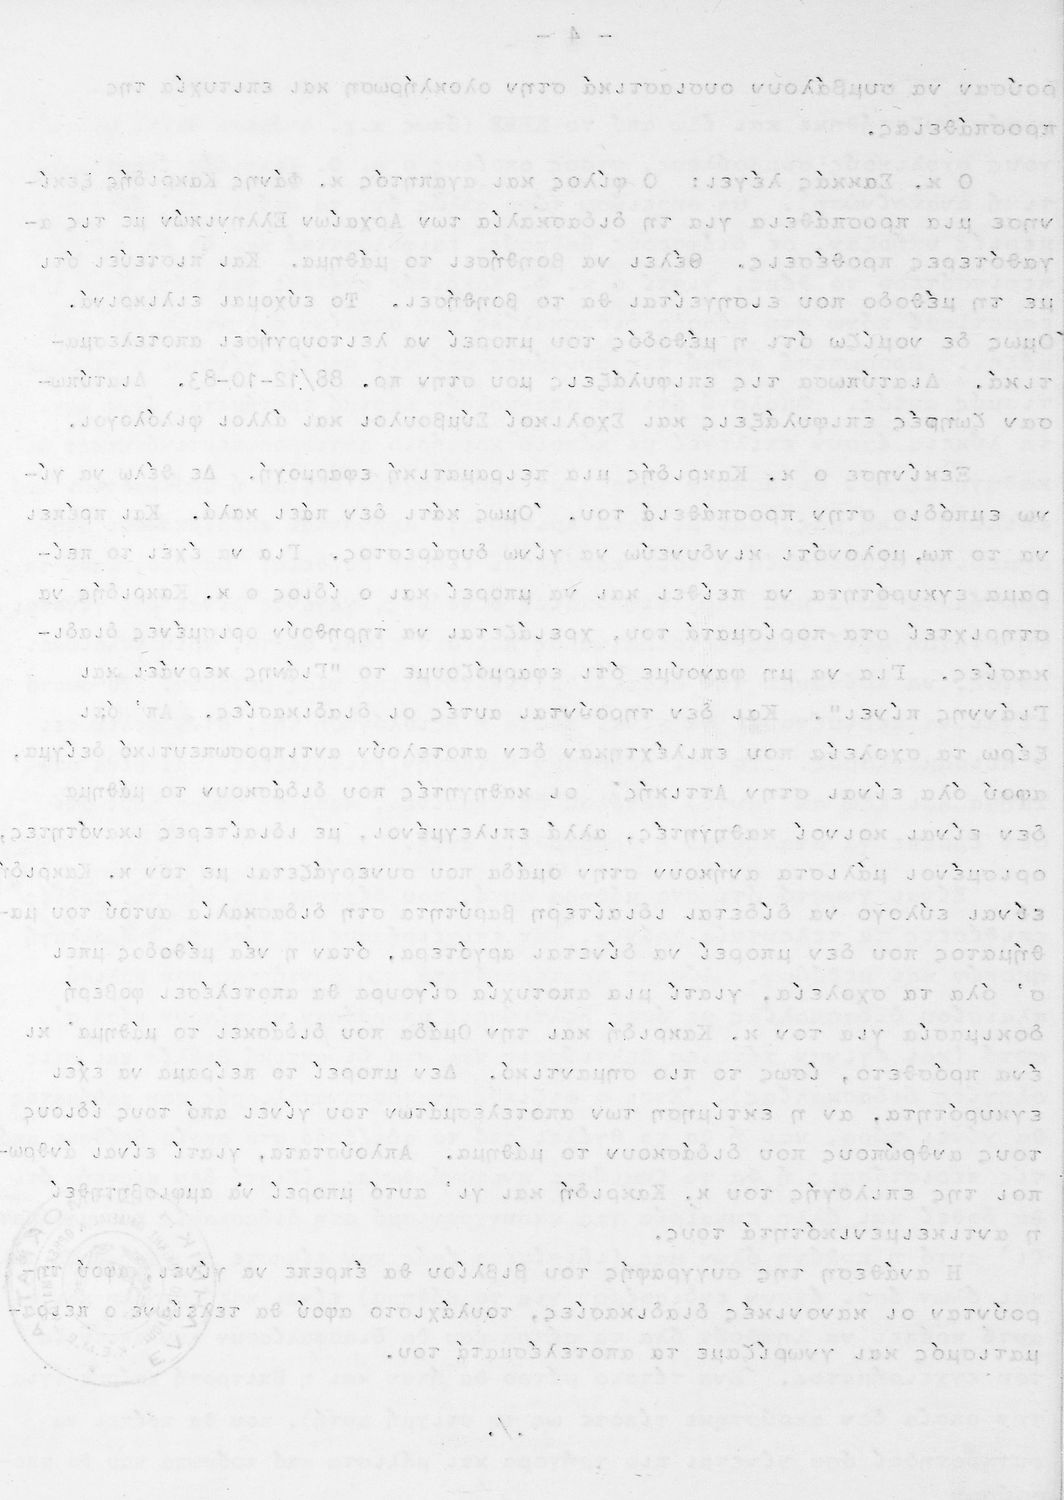 - 4 -
ρούσαν να συμβάλουν ουσιαστικά στην ολοκλήρωση και επιτυχία της
προσπάθειας.
Ο κ. Σακκάς λέγει: Ο φίλος και αγαπητός κ. Φάνης Κακριδής ξεκί-
νησε μια προσπάθεια για τη διδασκαλία των Αρχαίων Ελληνικών με τις α-
γαθότερες προθέσεις. Θέλει να βοηθήσει το μάθημα. Και πιστεύει ότι
με τη μέθοδο που εισηγείται θα το βοηθήσει. Το εύχομαι ειλικρινά.
Όμως δε νομίζω ότι η μέθοδός του μπορεί να λειτουργήσει αποτελεσμα-
τικά. Διατύπωσα τις επιφυλάξεις μου στην πρ. 88/12-10-83. Διατύπω-
σαν ζωηρές επιφυλάξεις και Σχολικοί Σύμβουλοι και άλλοι φιλόλογοι.
Ξεκίνησε ο κ. Κακριδής μια πειραματική εφαρμογή. Δε θέλω να γί-
νω εμπόδιο στην προσπάθειά του. Όμως κάτι δεν πάει καλά. Και πρέπει
να το πω, μολονότι κινδυνεύω να γίνω δυσάρεστος. Για να έχει το πεί-
ραμα εγκυρότητα να πείθει και να μπορεί και ο ίδιος ο κ. Κακριδής να
στηριχτεί στα πορίσματά του, χρειάζεται να τηρηθούν ορισμένες διαδι-
κασίες. Για να μη φανούμε ότι εφαρμόζουμε το "Γιάννης κερνάει και
Γιάννης πίνει". Και δεν τηρούνται αυτές οι διαδικασίες. Απ' ότι
ξέρω τα σχολεία που επιλέχτηκαν δεν αποτελούν αντιπροσωπευτικό δείγμα,
αφού όλα είναι στην Αττική· οι καθηγητές που διδάσκουν το μάθημα
δεν είναι κοινοί καθηγητές, αλλά επιλεγμένοι, με ιδιαίτερες ικανότητες,
ορισμένοι μάλιστα ανήκουν στην ομάδα που συνεργάζεται με τον κ. Κακριδή
είναι εύλογο να δίδεται ιδιαίτερη βαρύτητα στη διδασκαλία αυτού του μα-
θήματος που δεν μπορεί να δίνεται αργότερα, όταν η νέα μέθοδος μπει
σ' όλα τα σχολεία, γιατί μια αποτυχία σίγουρα θα αποτελέσει φοβερή
δοκιμασία για τον κ. Κακριδή και την Ομάδα που διδάσκει το μάθημα· κι
ένα πρόσθετο, ίσως το πιο σημαντικό. Δεν μπορεί το πείραμα να έχει
εγκυρότητα, αν η εκτίμηση των αποτελεσμάτων του γίνει από τους ίδιους
τους ανθρώπους που διδάσκουν το μάθημα. Απλούστατα, γιατί είναι άνθρω-
ποι της επιλογής του κ. Κακριδή και γι' αυτό μπορεί να αμφισβητηθεί
η αντικειμενικότητά τους.
Η ανάθεση της συγγραφής του βιβλίου θα έπρεπε να γίνει, αφού τη-
ρούνταν οι κανονικές διαδικασίες, τουλάχιστο αφού θα τελείωνε ο πειρα-
ματισμός και γνωρίζαμε τα αποτελέσματά του.
./.